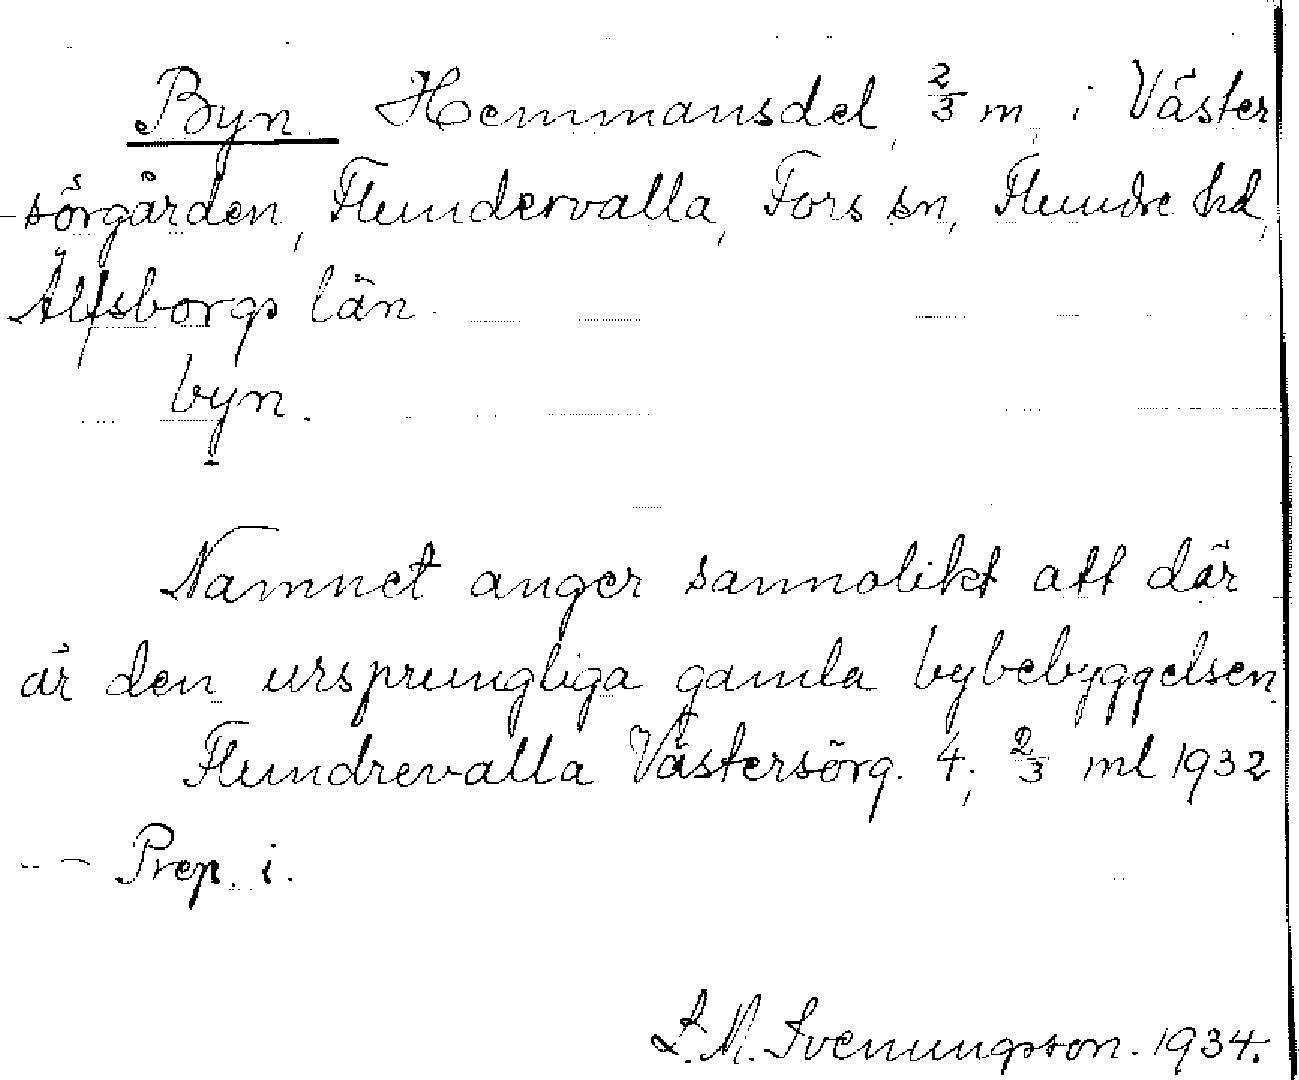 Byn Hemmansdel, 2/3 m, i Väster
sörgården, Flundervalla, Fors sn, Flundre hd,
Älfsborgs län.
byn.
Namnet anger sannolikt att där
är den ursprungliga gamla bybebyggelsen.
Flundrevalla Västersörg. 4; 2/3 ml 1932
-- – Prep. i.
L. M. Svenungsson. 1934.